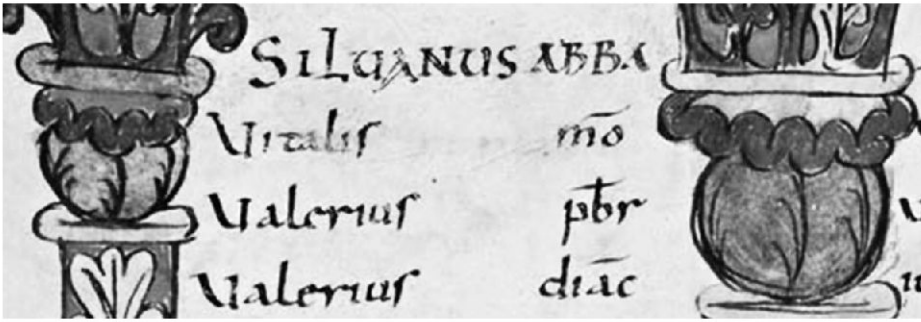 SILVANUS ABBA
Vitalis mō
Valerius pb̄r
Valerius diāc